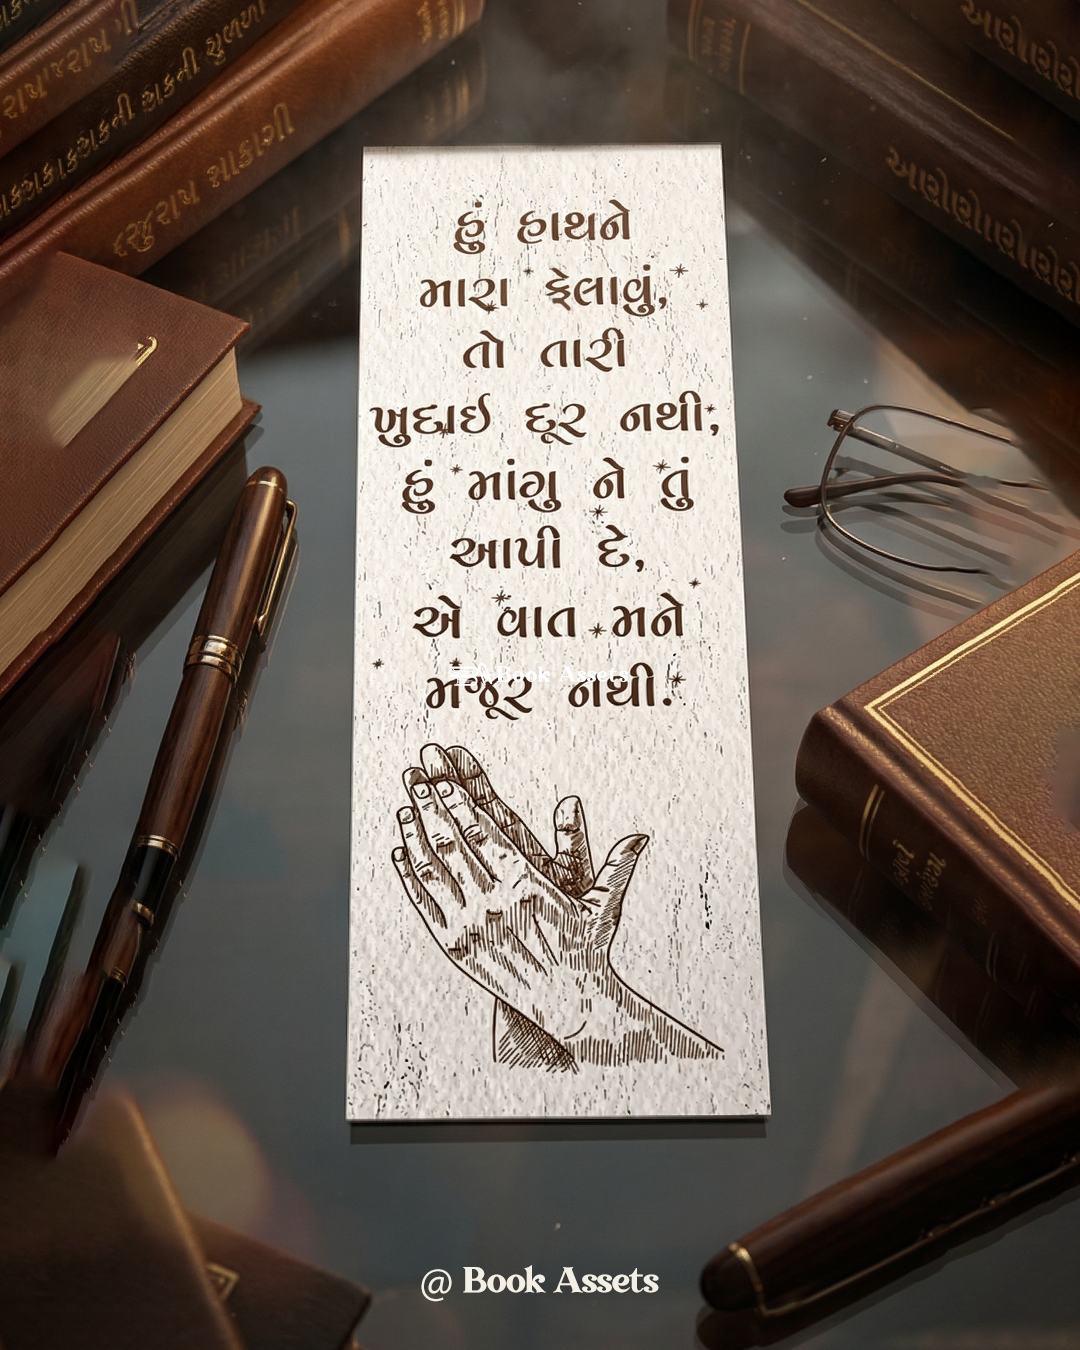 હું હાથને
મારા ફેલાવું,
તો તારી
ખુદાઈ દૂર નથી;
હું માંગુ ને તું
આપી દે,
એ વાત મને
મંજૂર નથી.
Book Assets
@ Book Assets